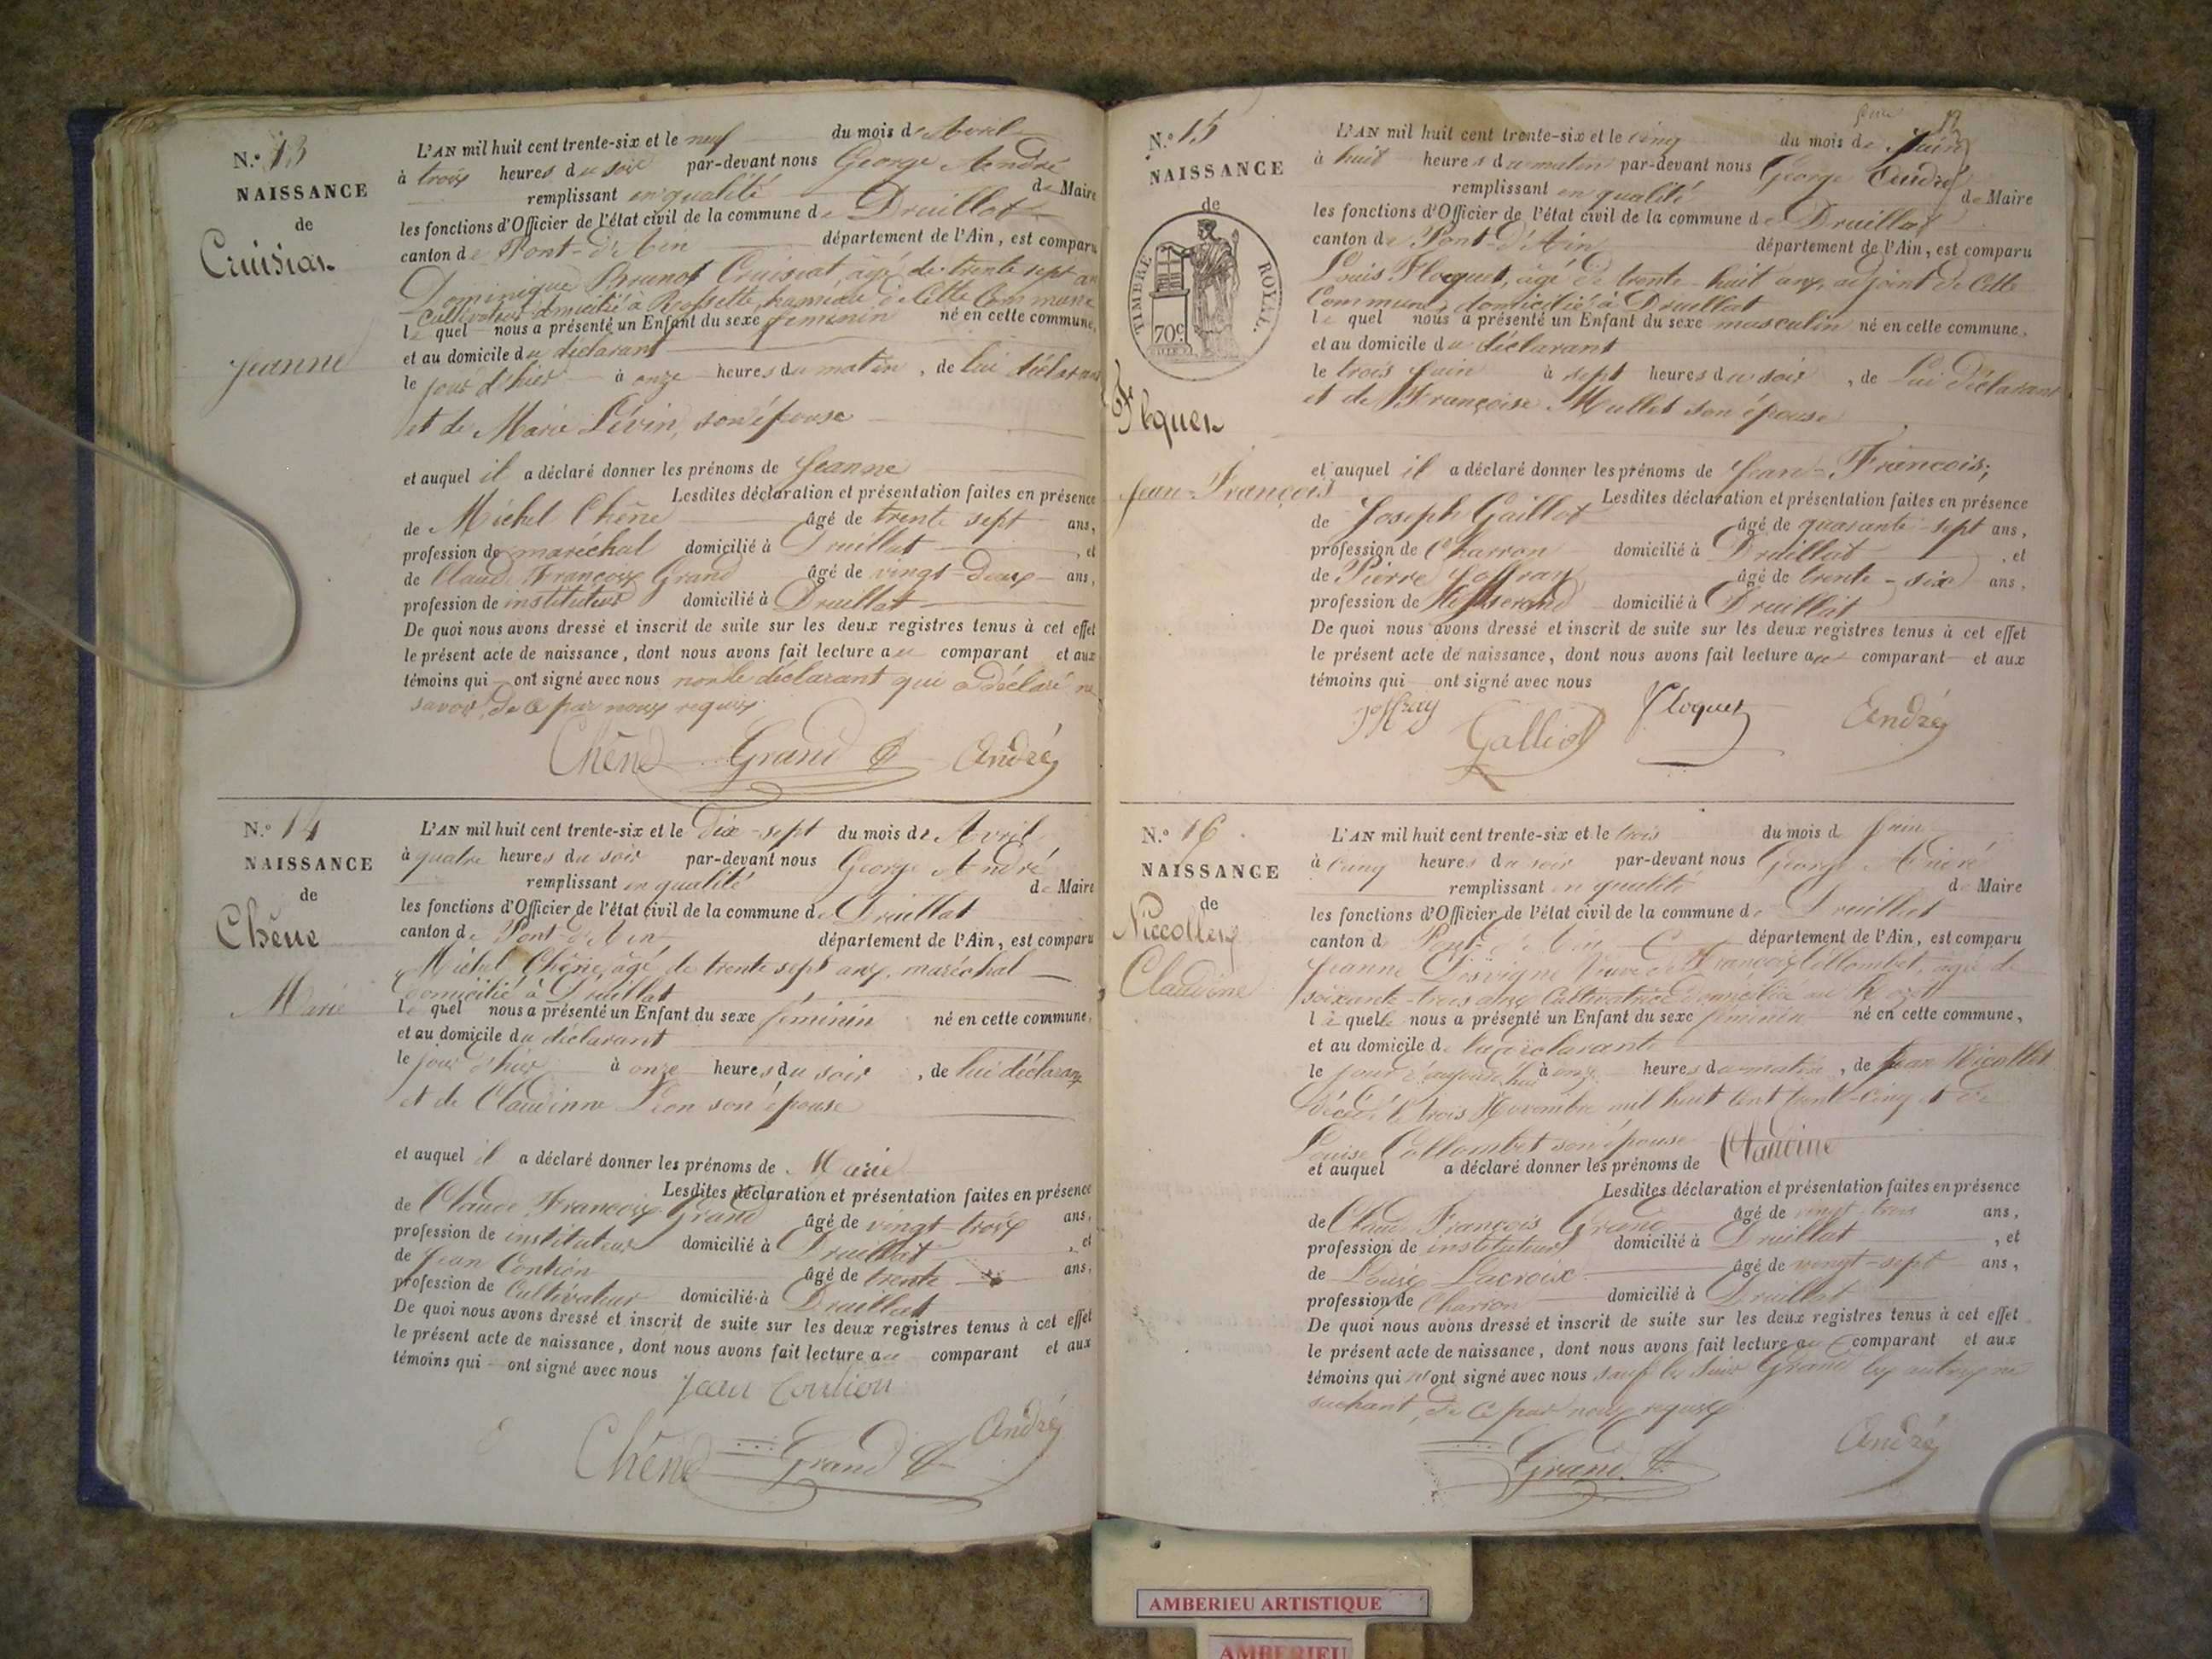 N.° 13
NAISSANCE
de
Cruisiat
Jeanne
L'AN mil huit cent trente-six et le neuf du mois de Avril
à trois heures du soir par-devant nous George André
remplissant en qualité de Maire
les fonctions d'Officier de l'état civil de la commune de Druillat
canton de Pont-d'Ain département de l'Ain, est comparu
Dominique Brunot Cruisiat, âgé de trente sept ans
cultivateur domicilié à Rossette, hameau de Cette Commune
lequel nous a présenté un Enfant du sexe féminin né en cette commune,
et au domicile du déclarant
le jour d'hier à onze heures du matin, de lui déclarant
et de Marie Lévin, son épouse
et auquel il a déclaré donner les prénoms de Jeanne
Lesdites déclaration et présentation faites en présence
de Michel Chêne âgé de trente sept ans,
profession de maréchal domicilié à Druillat, et
de Claude François Grand âgé de vingt-deux ans,
profession de instituteur domicilié à Druillat
De quoi nous avons dressé et inscrit de suite sur les deux registres tenus à cet effet
le présent acte de naissance, dont nous avons fait lecture au comparant et aux
témoins qui ont signé avec nous non le déclarant qui a déclaré ne
savoir, de ce par nous requis
Chêne Grand André
N.° 14
NAISSANCE
de
Chêne
Marie
L'AN mil huit cent trente-six et le dix-sept du mois de Avril
à quatre heures du soir par-devant nous George André
remplissant en qualité de Maire
les fonctions d'Officier de l'état civil de la commune de Druillat
canton de Pont-d'Ain département de l'Ain, est comparu
Michel Chêne, âgé de trente sept ans, maréchal
domicilié à Druillat
lequel nous a présenté un Enfant du sexe féminin né en cette commune,
et au domicile du déclarant
le jour d'hier à onze heures du soir, de lui déclarant
et de Claudinne Léon son épouse
et auquel il a déclaré donner les prénoms de Marie
Lesdites déclaration et présentation faites en présence
de Claude François Grand âgé de vingt-trois ans,
profession de instituteur domicilié à Druillat, et
de Jean Contion âgé de trente ans,
profession de Cultivateur domicilié à Druillat
De quoi nous avons dressé et inscrit de suite sur les deux registres tenus à cet effet
le présent acte de naissance, dont nous avons fait lecture au comparant et aux
témoins qui ont signé avec nous
Jean Contion
Chêne Grand André
N.° 15
NAISSANCE
de
TIMBRE ROYAL.
70c
Floquet
Jean-François
L'AN mil huit cent trente-six et le cinq du mois de Juin
à huit heures du matin par-devant nous George André
remplissant en qualité de Maire
les fonctions d'Officier de l'état civil de la commune de Druillat
canton de Pont-d'Ain département de l'Ain, est comparu
Louis Floquet, âgé de trente-huit ans, adjoint de Cette
Commune, domicilié à Druillat
lequel nous a présenté un Enfant du sexe masculin né en cette commune,
et au domicile du déclarant
le trois Juin à sept heures du soir, de Lui déclarant
et de Françoise Mullet son épouse
et auquel il a déclaré donner les prénoms de Jean-François;
Lesdites déclaration et présentation faites en présence
de Joseph Gaillot âgé de quarante-sept ans,
profession de Charron domicilié à Druillat, et
de Pierre Joffray âgé de trente-six ans,
profession de domicilié à Druillat
De quoi nous avons dressé et inscrit de suite sur les deux registres tenus à cet effet
le présent acte de naissance, dont nous avons fait lecture aux comparant et aux
témoins qui ont signé avec nous
Joffray Galliot Floquet André
N.° 16
NAISSANCE
de
Niccollet
Claudine
L'AN mil huit cent trente-six et le trois du mois de Juin
à cinq heures du soir par-devant nous George André
remplissant en qualité de Maire
les fonctions d'Officier de l'état civil de la commune de Druillat
canton d Pont-d'Ain département de l'Ain, est comparu
Jeanne Desvigne Veuve de François Collombet, âgée de
soixante-trois ans Cultivatrice domiciliée au
laquelle nous a présenté un Enfant du sexe féminin né en cette commune,
et au domicile de la déclarante
le jour d'aujourd'hui à onze heures du matin, de Jean Nicollet
décédé le trois Novembre mil huit cent trente-cinq et de
Louise Collombet son épouse
et auquel a déclaré donner les prénoms de Claudine
Lesdites déclaration et présentation faites en présence
de Claude François Grand âgé de vingt trois ans,
profession de instituteur domicilié à Druillat, et
de Louis Lacroix âgé de vingt-sept ans,
profession de Charron domicilié à Druillat
De quoi nous avons dressé et inscrit de suite sur les deux registres tenus à cet effet
le présent acte de naissance, dont nous avons fait lecture au comparant et aux
témoins qui n'ont signé avec nous sauf le sieur Grand les autres ne
sachant, de ce par nous requis
Grand André
AMBERIEU ARTISTIQUE
AMBERIEU